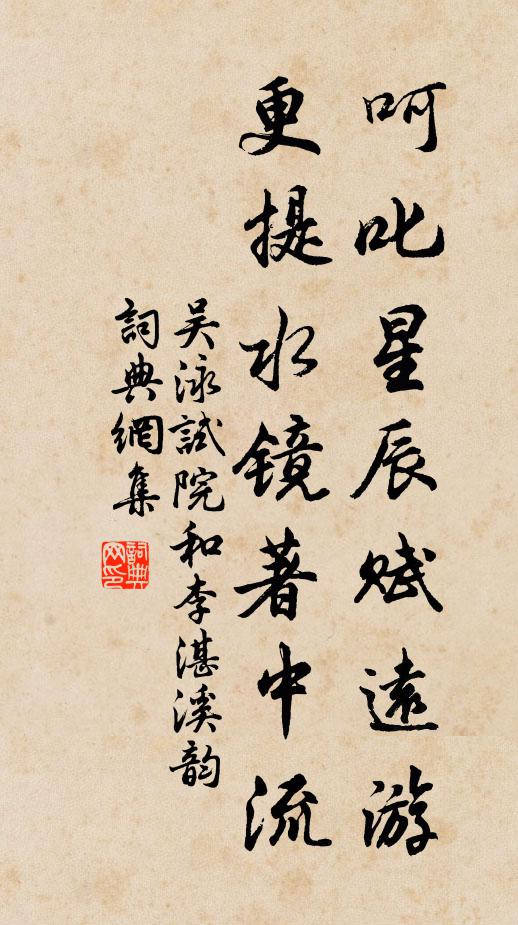 呵叱星辰赋遠游
更提水镜著中流
吴泳試院和李湛溪韵
詞典網集
詞典网印